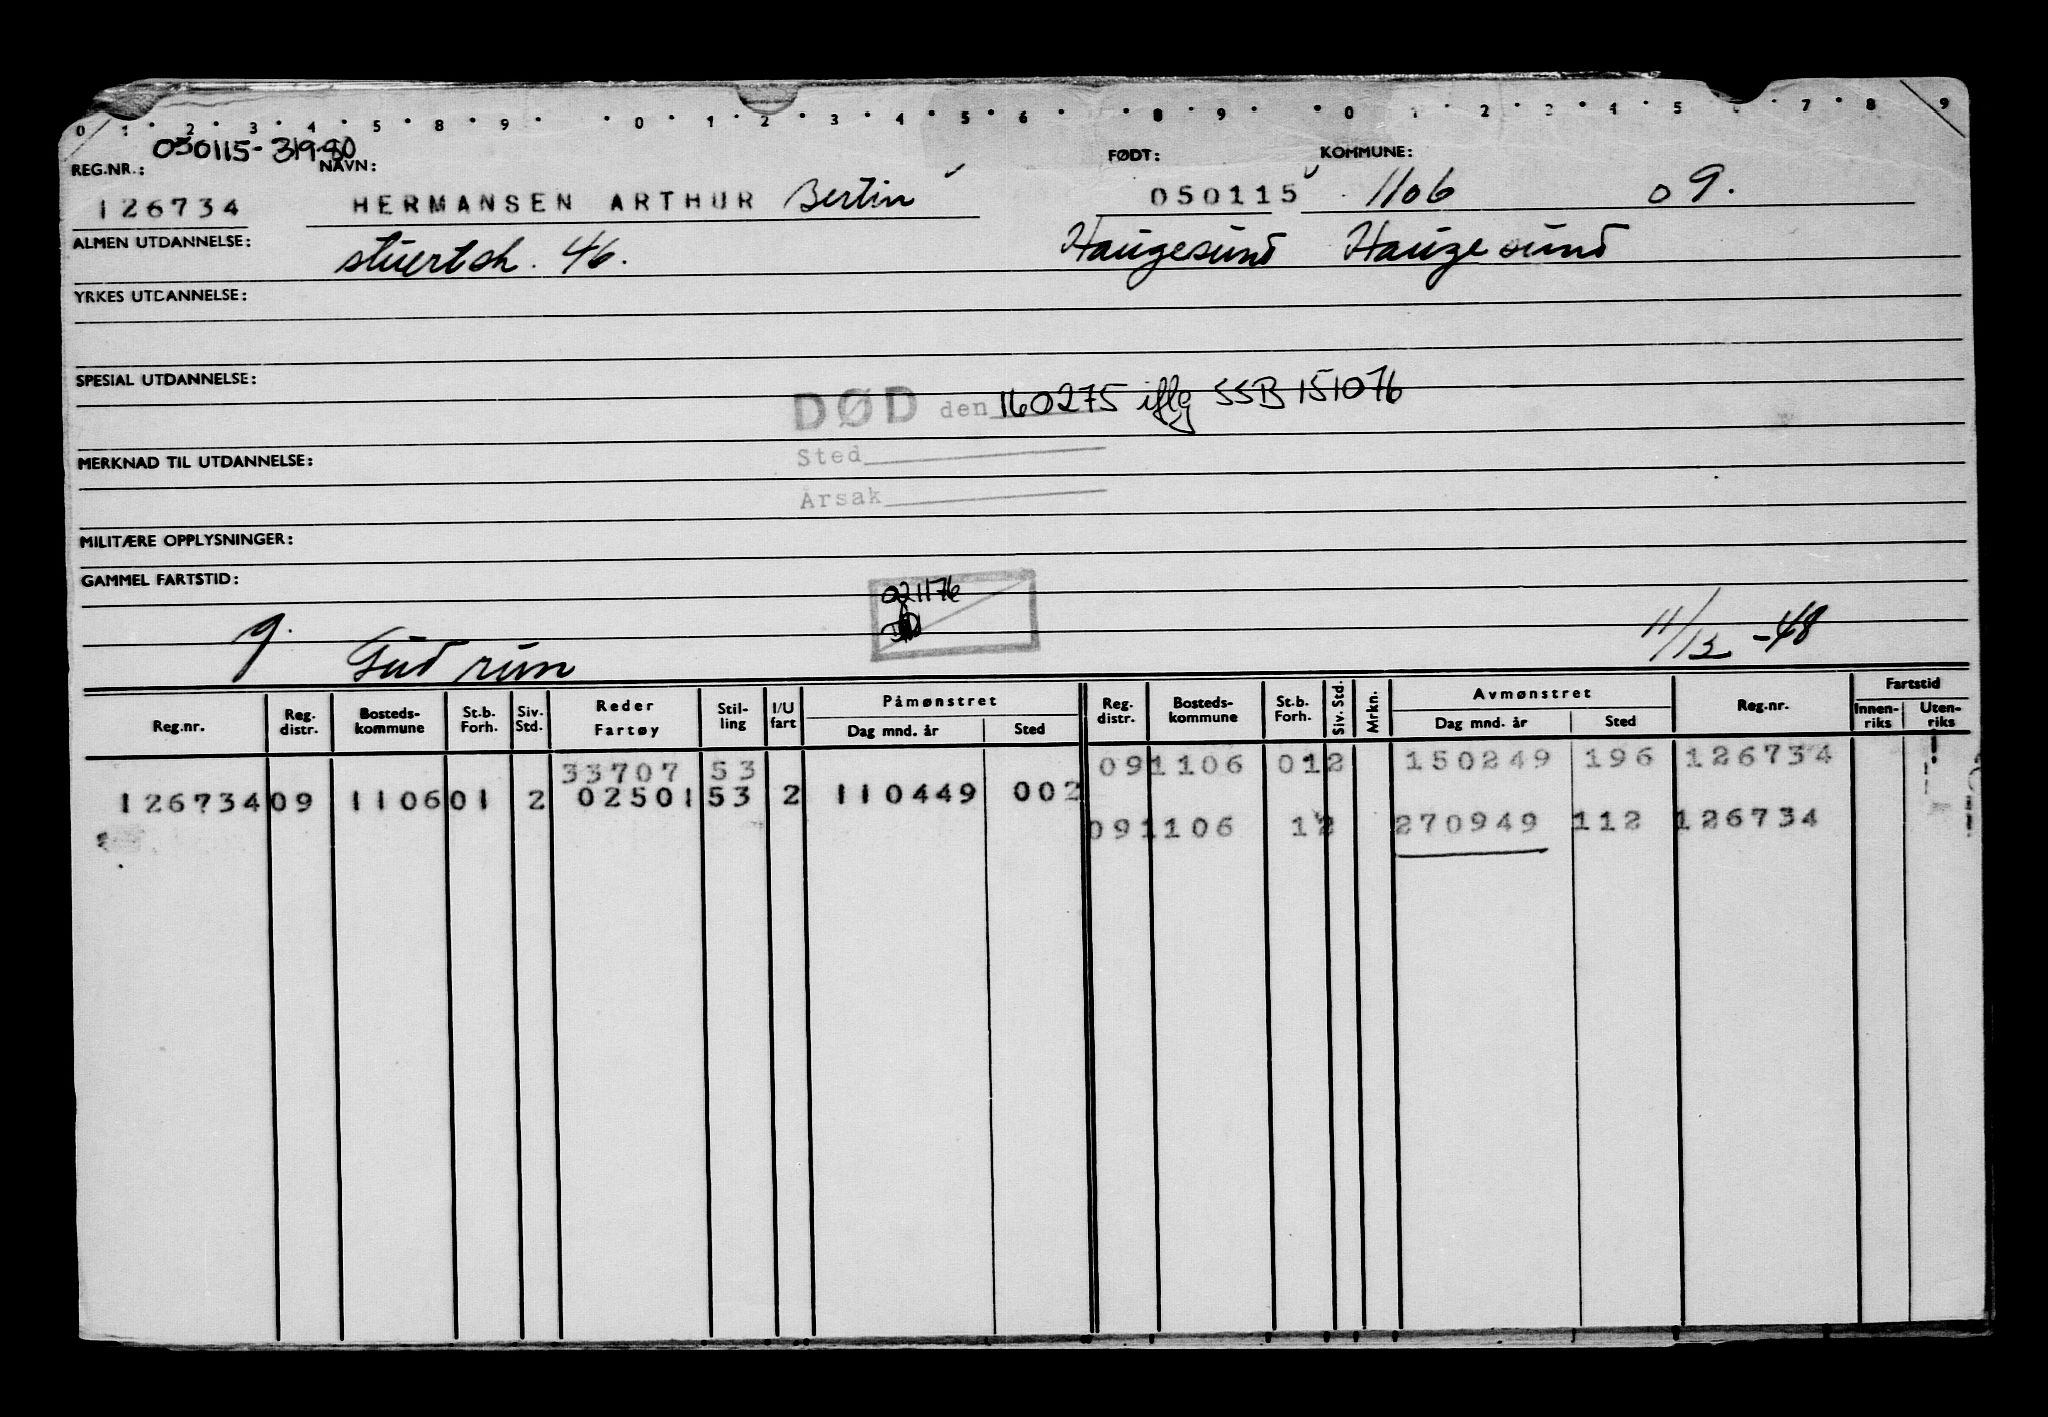 0 1 2 3 4 5 8 9 0 1 2 3 4 5 6 8 9 0 1 2 3 4 5 7 8 9
050115-31980
REG.NR.: NAVN: FØDT: KOMMUNE:
126734 HERMANSEN ARTHUR Bertin 050115 1106 09.
ALMEN UTDANNELSE: stuertsk. 46. Haugesund Haugesund
YRKES UTDANNELSE:
SPESIAL UTDANNELSE:
DØD den 160275 iflg SSB 151076
MERKNAD TIL UTDANNELSE: Sted
Årsak
MILITÆRE OPPLYSNINGER:
GAMMEL FARTSTID:
021176
g. Gudrun 11/12-48
Reg.nr. Reg. distr. Bosteds-kommune St.b. Forh. Siv. Std. Reder Fartøy Stil-ling I/U fart Påmønstret Dag mnd. år Sted Reg. distr. Bosteds-kommune St.b. Forh. Siv. Std. Mrkn. Avmønstret Dag mnd. år Sted Reg.nr. Fartstid Innen-riks Uten-riks
33707 53 091106 012 150249 196 126734
126734 09 1106 01 2 02501 53 2 110449 002
091106 12 270949 112 126734